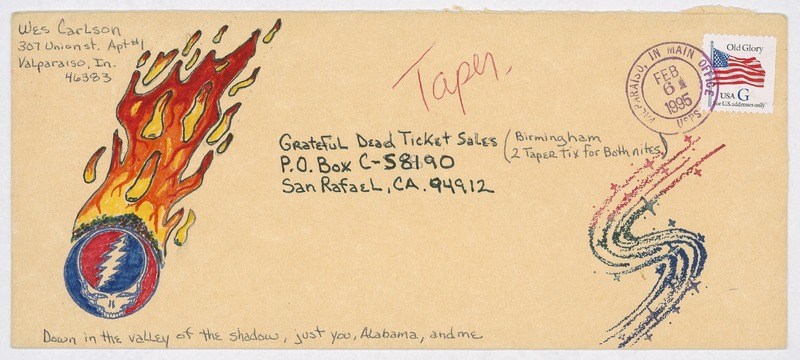 Wes Carlson
307 Union st. Apt#1
Valparaiso, In.
46383
Taper.
VALPARAISO, IN MAIN OFFICE
FEB
6
1995
USPS
Old Glory
USA G
For U.S. addresses only
Grateful Dead Ticket Sales
P.O. Box C-S8190
San Rafael, CA. 94912
(Birmingham
2 Taper Tix for Both nites)
Down in the valley of the shadow, just you, Alabama, and me